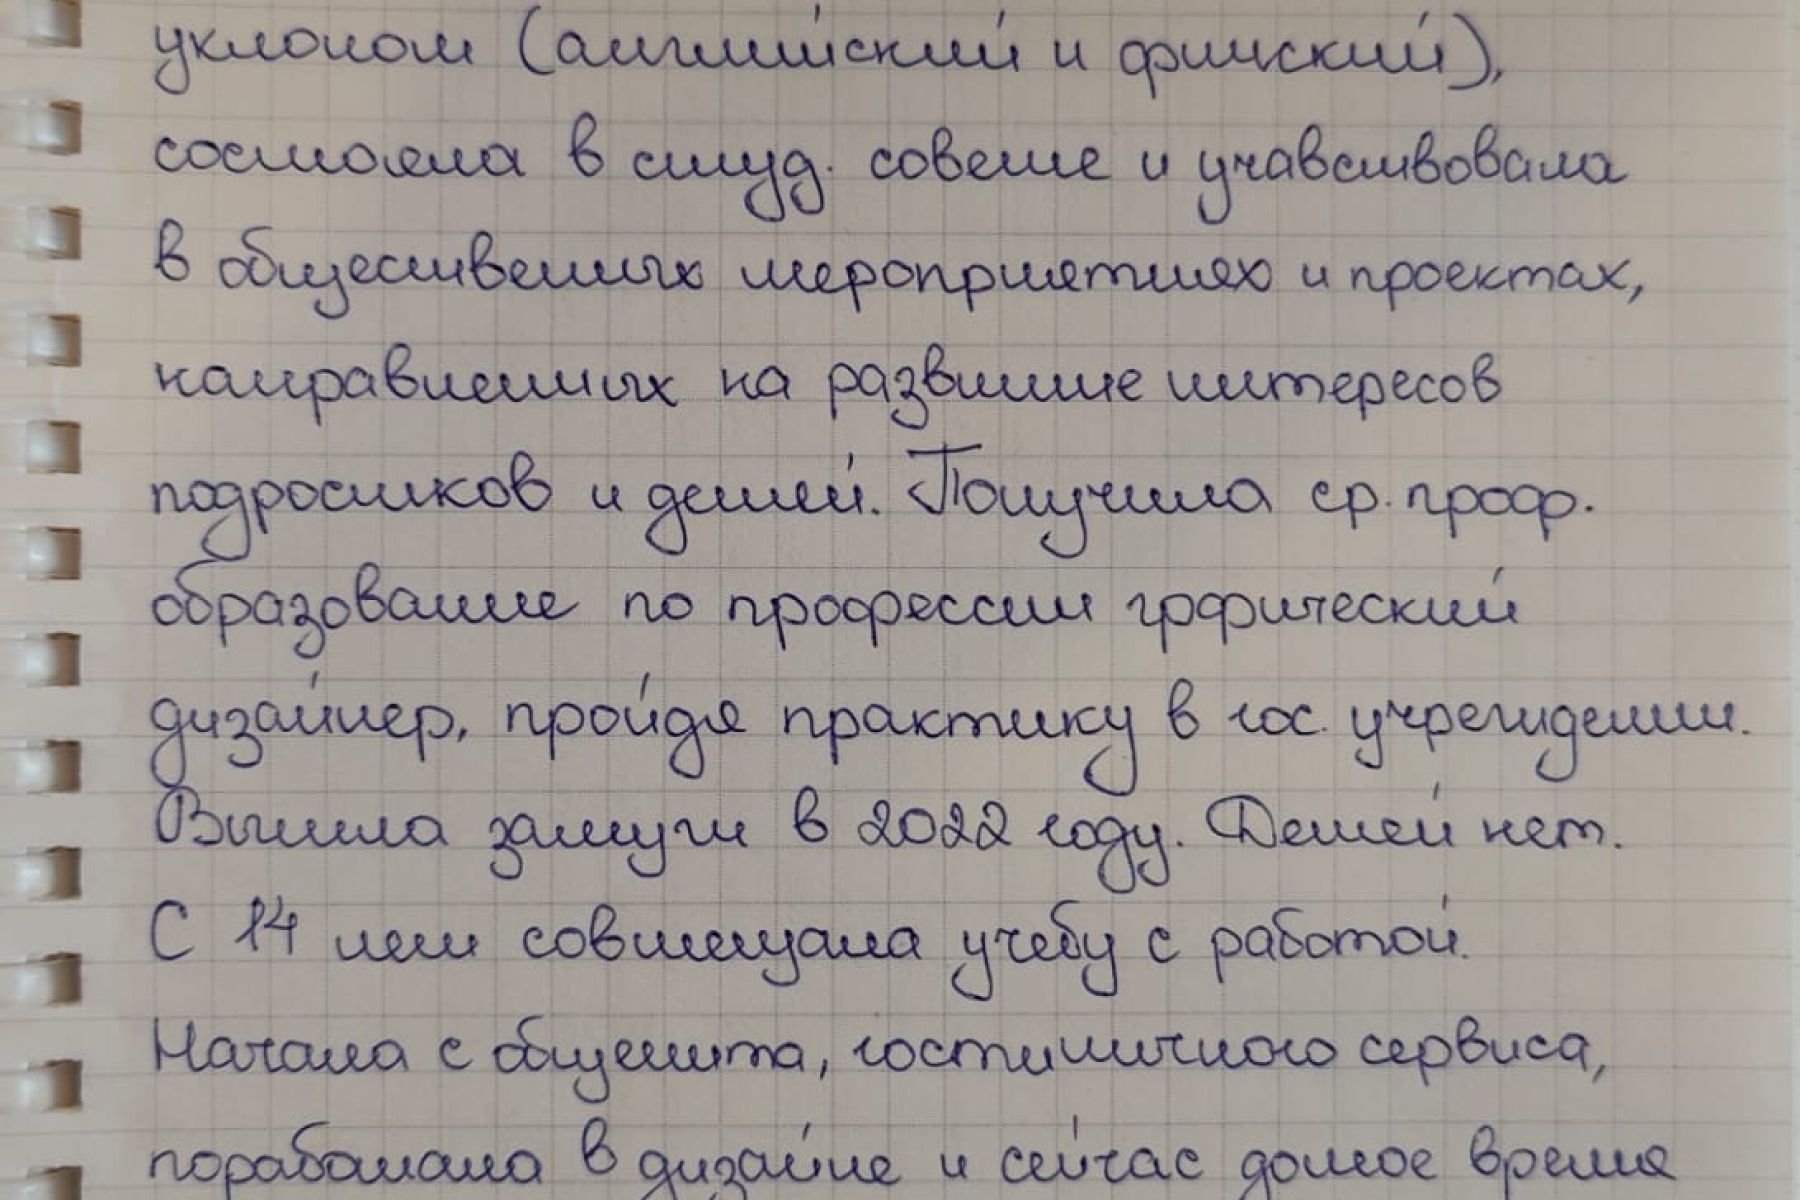 уклоном (английский и финский),
состояла в студ. совете и учавствовала
в общественных мероприятиях и проектах,
направленных на развитие интересов
подростков и детей. Получила ср. проф.
образование по профессии грфический
дизайнер, пройдя практику в гос. учреждении.
Вышла замуж в 2022 году. Детей нет.
С 14 лет совмещала учебу с работой.
Начала с общепита, гостиничного сервиса,
поработала в дизайне и сейчас долгое время